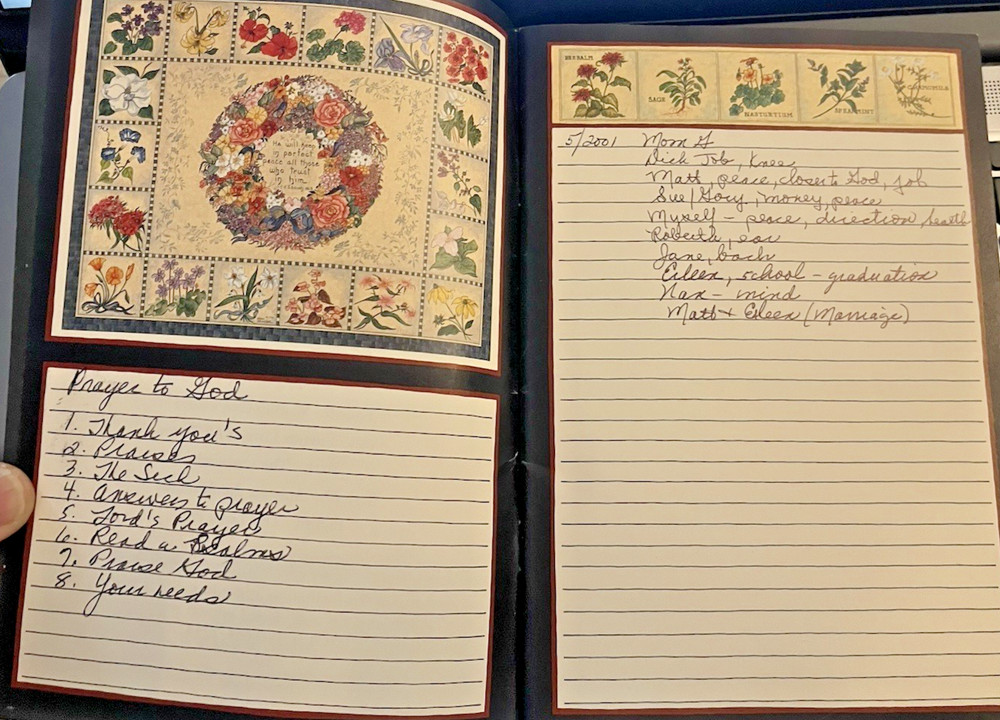 He will keep
in perfect
peace all those
who trust
in him.
Prayer to God
1. Thank you's
2. Praises
3. The Sick
4. Answers to prayer
5. Lord's Prayer
6. Read a Psalms
7. Praise God
8. Your needs
BEEBALM
SAGE
NASTURTIUM
SPEARMINT
CHAMOMILE
5/2001 Mom G
Dick Job, Knee
Matt, peace, closer to God, job
Sue/Gary, money, peace
Myself - peace, direction, health
Roberta, ear
Jane, back
Eileen, school - graduation
Nan - mind
Matt + Eileen (Marriage)